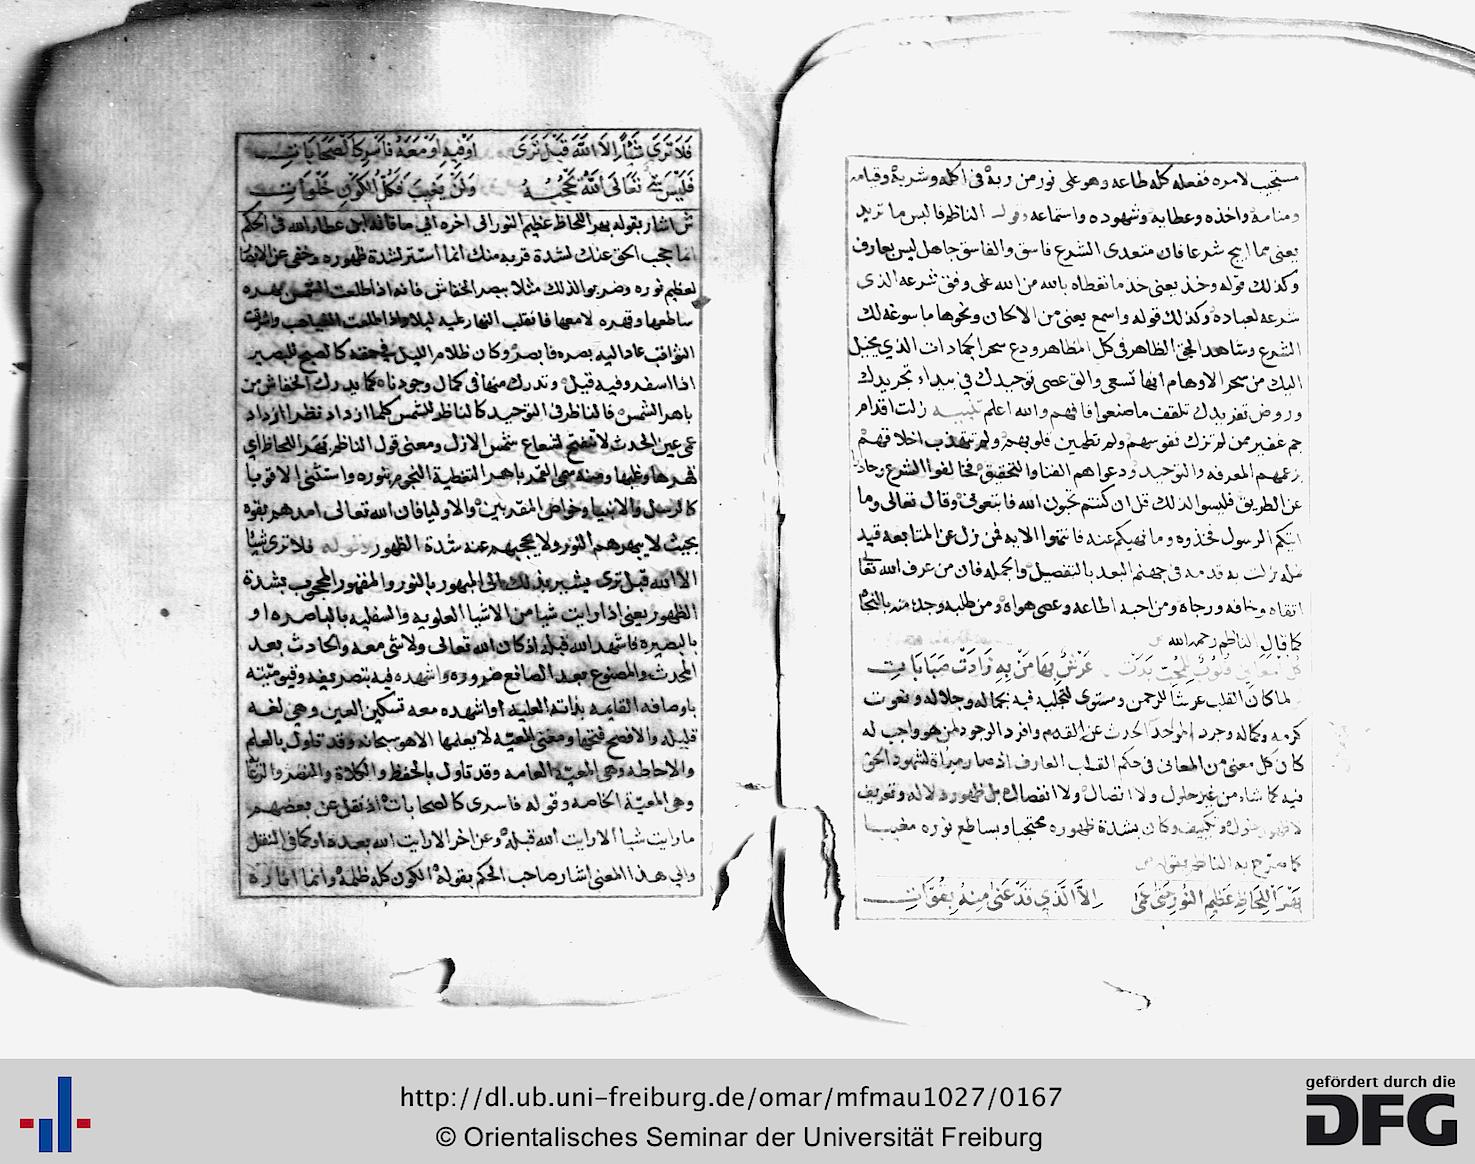 مستجيب لامره ففعله كله طاعه وهو على نور من ربه في اكله وشربه وقيامه
ومنامه واخذه وعطايه وشهوده واستماعه وقوله الناظم فالبس ما تريد
يعني مما ابيح شرعا فان متعدى الشرع فاسق والفاسق جاهل ليس بعارف
وكذلك قوله وخذ يعني خذ ما تعطاه بالله من الله على وفق شرعه الذى
شرعه لعباده وكذلك قوله واسمع يعني من الالحان ونحوها ما سوغه لك
الشرع وشاهد الحق الظاهر في كل المظاهر ودع سحر الجمادات الذي يخيل
اليك من سحر الاوهام انها تسعى والق عصى توحيدك في بيداء تجريدك
وروض تفريدك تلقف ما صنعوا فافهم والله اعلم تنبيه زلت اقدام
جم غفير ممن لم تزك نفوسهم ولم تطمين قلوبهم ولم تتهذب اخلاقهم
بزعمهم المعرفه والتوحيد ودعواهم الفنا والتحقيق فخالفوا الشرع وحادوا
عن الطريق فليسوا لذلك قل ان كنتم تحبون الله فاتبعوني وقال تعالى وما
اتيكم الرسول فخذوه وما نهيكم عنه فانتهوا الايه فمن زل عن المتابعه قيد
زلت به قدمه في جهنم البعد بالتفصيل والجمله فان من عرف الله تعالى
اتقاه وخافه ورجاه ومن احبه اطاعه وعصى هواه ومن طلبه وجده منه بالنجاة
كما قال الناظم رحمه الله
قلوب لمحب بدت عرش بها من به زادت صبابات
لما كان القلب عرشا للرحمن ومستوى لتجليه فيه بجماله وجلاله ونعوت
كرمه وكماله وجرد الموحد الحدث عن القدم وافرد الوجود لمن هو واجب له
كان كل معنى من المعاني في حكم القلب العارف اذ صار مراة لشهود الحق
فيه كما شاء من غير حلول ولا اتصال ولا انفصال بل ظهور دلاله وتعريف
لا ظهور حلول وتكييف وكان بشدة ظهوره محتجبا وبساطع نوره مغيبا
كما صرح به الناظم بقوله
بهر اللحاظ عظيم النور حتى عمى الا الذي قد عنى منه بقوات
فلا ترى شيئا الا الله قبل ترى او فيه او معه فاسر كالصحابات
فليس شي تعالى الله يحجبه ولن يغيب فكل الكون خلوات
ش اشار بقوله بهر اللحاظ عظيم النور الى اخره الي ما قاله ابن عطاء الله في الحكم
انما حجب الحق عنك لشدة قربه منك انما استتر لشدة ظهوره وخفى عن الابصار
لعظيم نوره وضربوا لذلك مثلا ببصر الخفاش فانه اذا طلعت الشمس بهره
ساطعها وقهره لامعها فانقلب النهار عليه ليلا واذا طلعت الغياهب واشرقت
الثواقب عاد اليه بصره فابصر وكان ظلام الليل في حقه كالصبح للبصير
اذا اسفر وفيه قيل وتدرك منها في كمال وجودنا كما يدرك الخفاش من
باهر الشمس فالناظر في التوحيد كالناظر للشمس كلما ازداد نظرا ازداد
عمى عين الحدث لا تنفتح لشعاع شمس الازل ومعنى قول الناظم بهر اللحاظ اي
قهرها وغلبها ومنه سمى القمر باهر التغطية النجوم بنوره واستثنى الاقويا
كالرسل والانبيا وخواص المقربين والاوليا فان الله تعالى امدهم بقوه
بحيث لا يبهرهم النور ولا يحجبهم عنه شدة الظهور وقوله فلا ترى شيئا
الا الله قبل ترى يشير بذلك الى المبهور بالنور والمقهور المحجوب بشدة
الظهور يعني اذا رايت شيا من الاشيا العلويه والسفليه بالباصره او
بالبصيره فاشهد الله قبله اذ كان الله تعالى ولا شي معه والحادث بعد
المحدث والمصنوع بعد الصانع ضروره واشهده فيه بتصريفه وقيوميته
باوصافه القايمه بذاته العليه او اشهده معه تسكين العين وهي لغه
قليله والافصح فتحها ومعنى المعيه لا يعلمها الا هو سبحانه وقد تاول بالعلم
والاحاطه وهي المعيه العامه وقد تاول بالحفظ والكلاة والنصر والرعاية
وهي المعية الخاصه وقوله فاسرى كالصحابات اذ نقل عن بعضهم
ما رايت شيا الا رايت الله قبله وعن اخر الا رايت الله بعده او كما في النقل
والي هذا المعني اشار صاحب الحكم بقوله الكون كله ظلمة وانما اناره
http://dl.ub.uni-freiburg.de/omar/mfmau1027/0167
© Orientalisches Seminar der Universität Freiburg
gefördert durch die
DFG